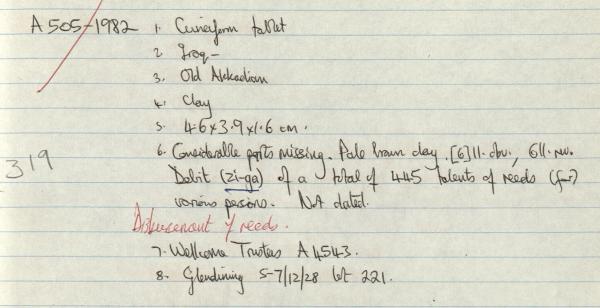 A505-1982 1. Cuneiform tablet
2. Iraq -
3. Old Akkadian
4. Clay
5. 4.6 x 3.9 x 1.6 cm.
319
6. Considerable parts missing. Pale brown clay. [6] ll. obv., 6 ll. rev.
Debit (zi-ga) of a total of 445 talents of reeds (for?)
various persons. Not dated.
Disbursement of reeds.
7. Wellcome Trustees A 4543.
8. Glendining 5-7/12/28 lot 221.